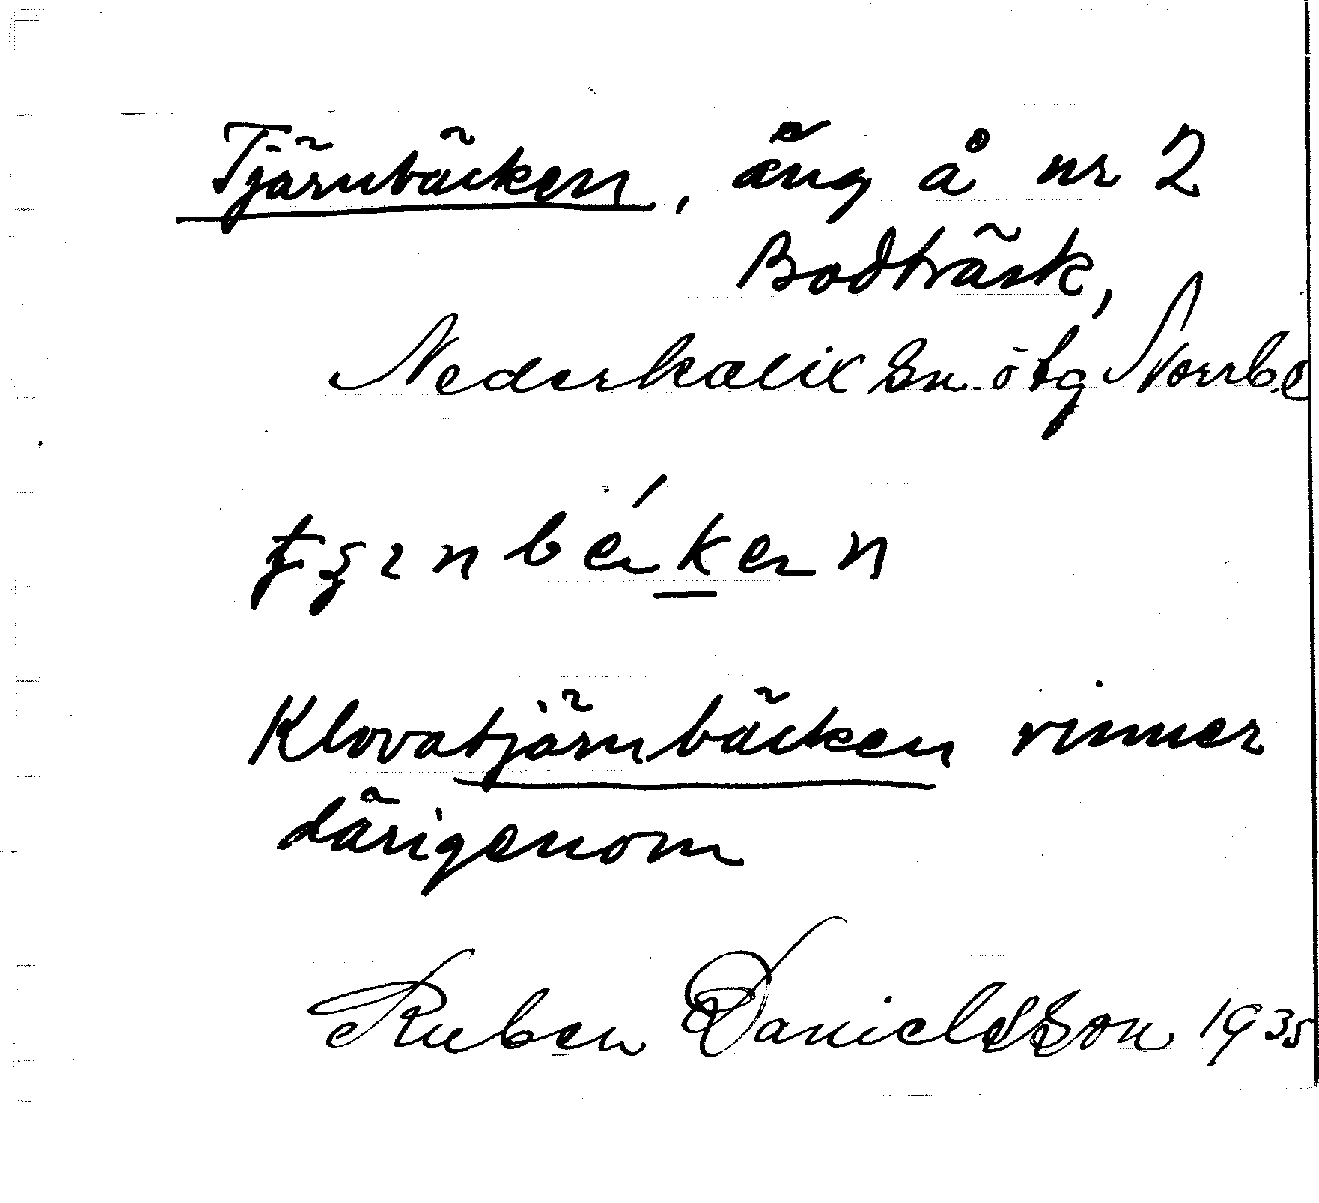 Tjärnbäcken, äng å nr 2
Bodträsk,
Nederkalix Sn ötg Norrb.
Klovatjärnbäcken rinner
därigenom
Ruben Danielsson 1935